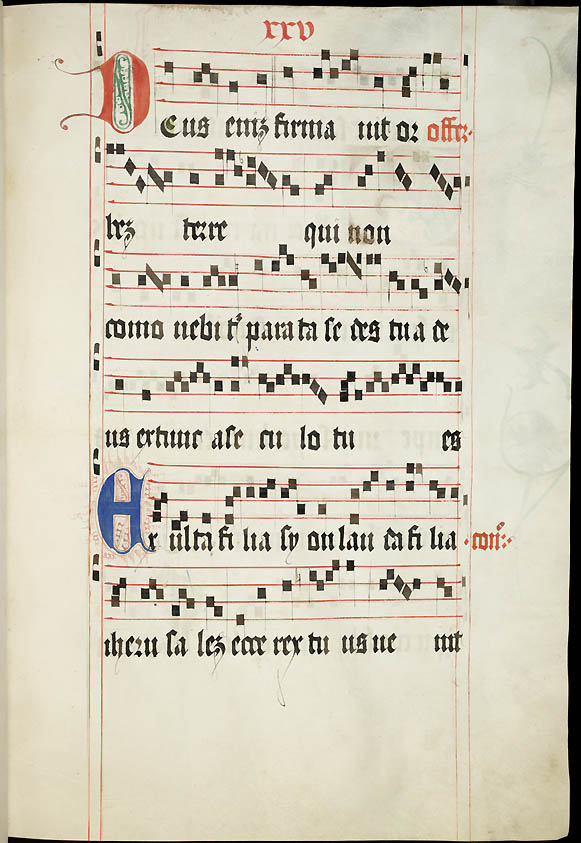 xxv
Deus eniz firma uit or offer.
bez terre qui non
como uebit' parata se des tua de
us ex tunc a se cu lo tu es
Exulta fi lia sy on lau da fi lia con°:
iheru sa lez ecce rex tu us ue nit